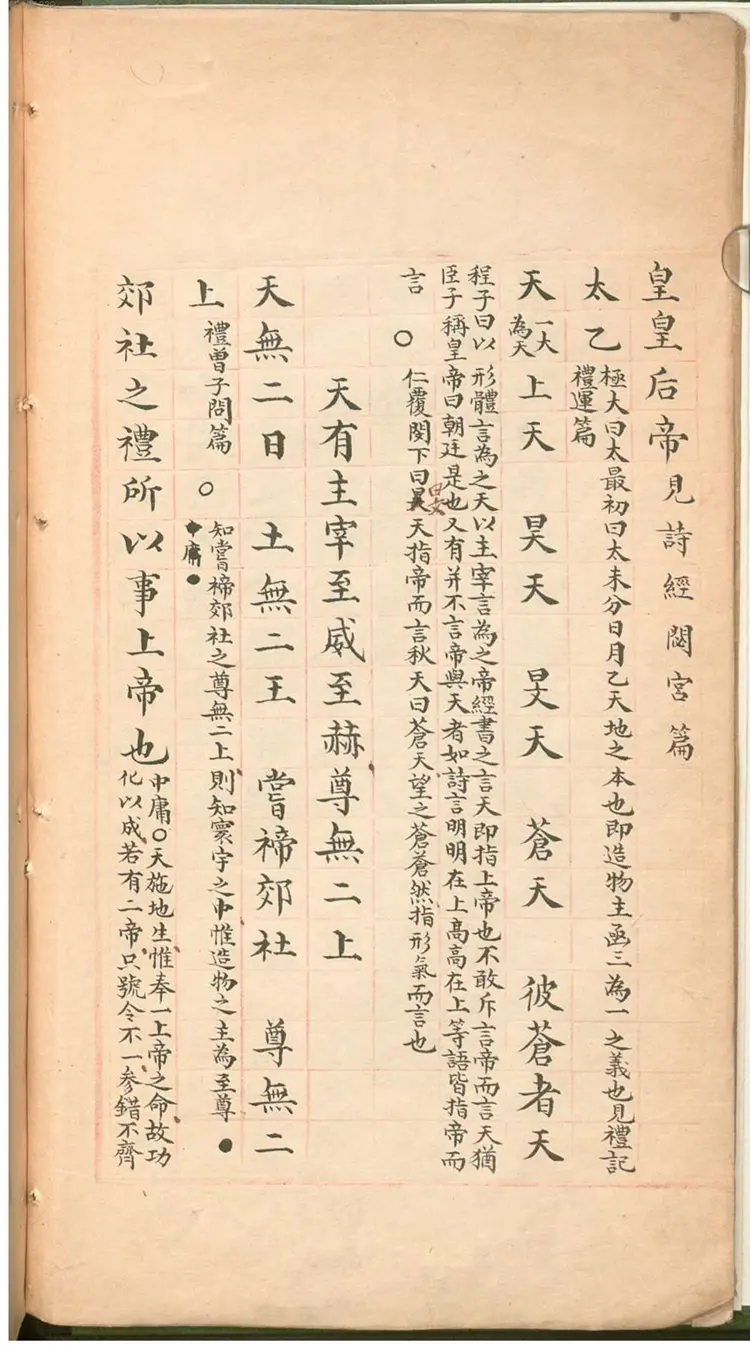 皇皇后帝見詩經閟宮篇
太乙極大曰太最初曰太未分日月乙天地之本也即造物主函三為一之義也見禮記
禮運篇
天一大
為天上天 昊天 旻天 蒼天 彼蒼者天
程子曰以形體言為之天以主宰言為之帝經書之言天即指上帝也不敢斥言帝而言天猶
臣子稱皇帝曰朝廷是也又有并不言帝與天者如詩言明明在上高高在上等語皆指帝而
言 ○ 仁覆閔下曰旻天指帝而言秋天曰蒼天望之蒼蒼然指形氣而言也
天有主宰至威至赫尊無二上
天無二日 土無二王 嘗禘郊社 尊無二
上禮曾子問篇 ○ 知嘗禘郊社之尊無二上則知寰宇之中惟造物之主為至尊●
中庸●
郊社之禮所以事上帝也中庸○天施地生惟奉一上帝之命故功
化以成若有二帝只號令不一參錯不齊